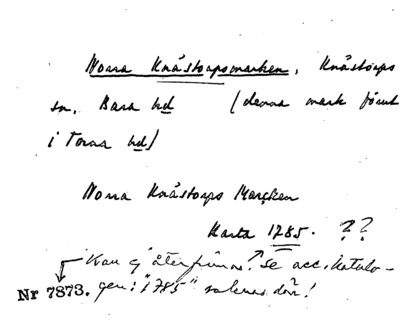 Norra Knåstorpsmarken, Knåstorps
sn, Bara hd (denna mark förut
i Torna hd)
Norra Knåstorps Marcken
Karta 1785. ??
Kan ej återfinnas. Se acc. katalo-
Nr 7873. gen: "1785" saknas där!